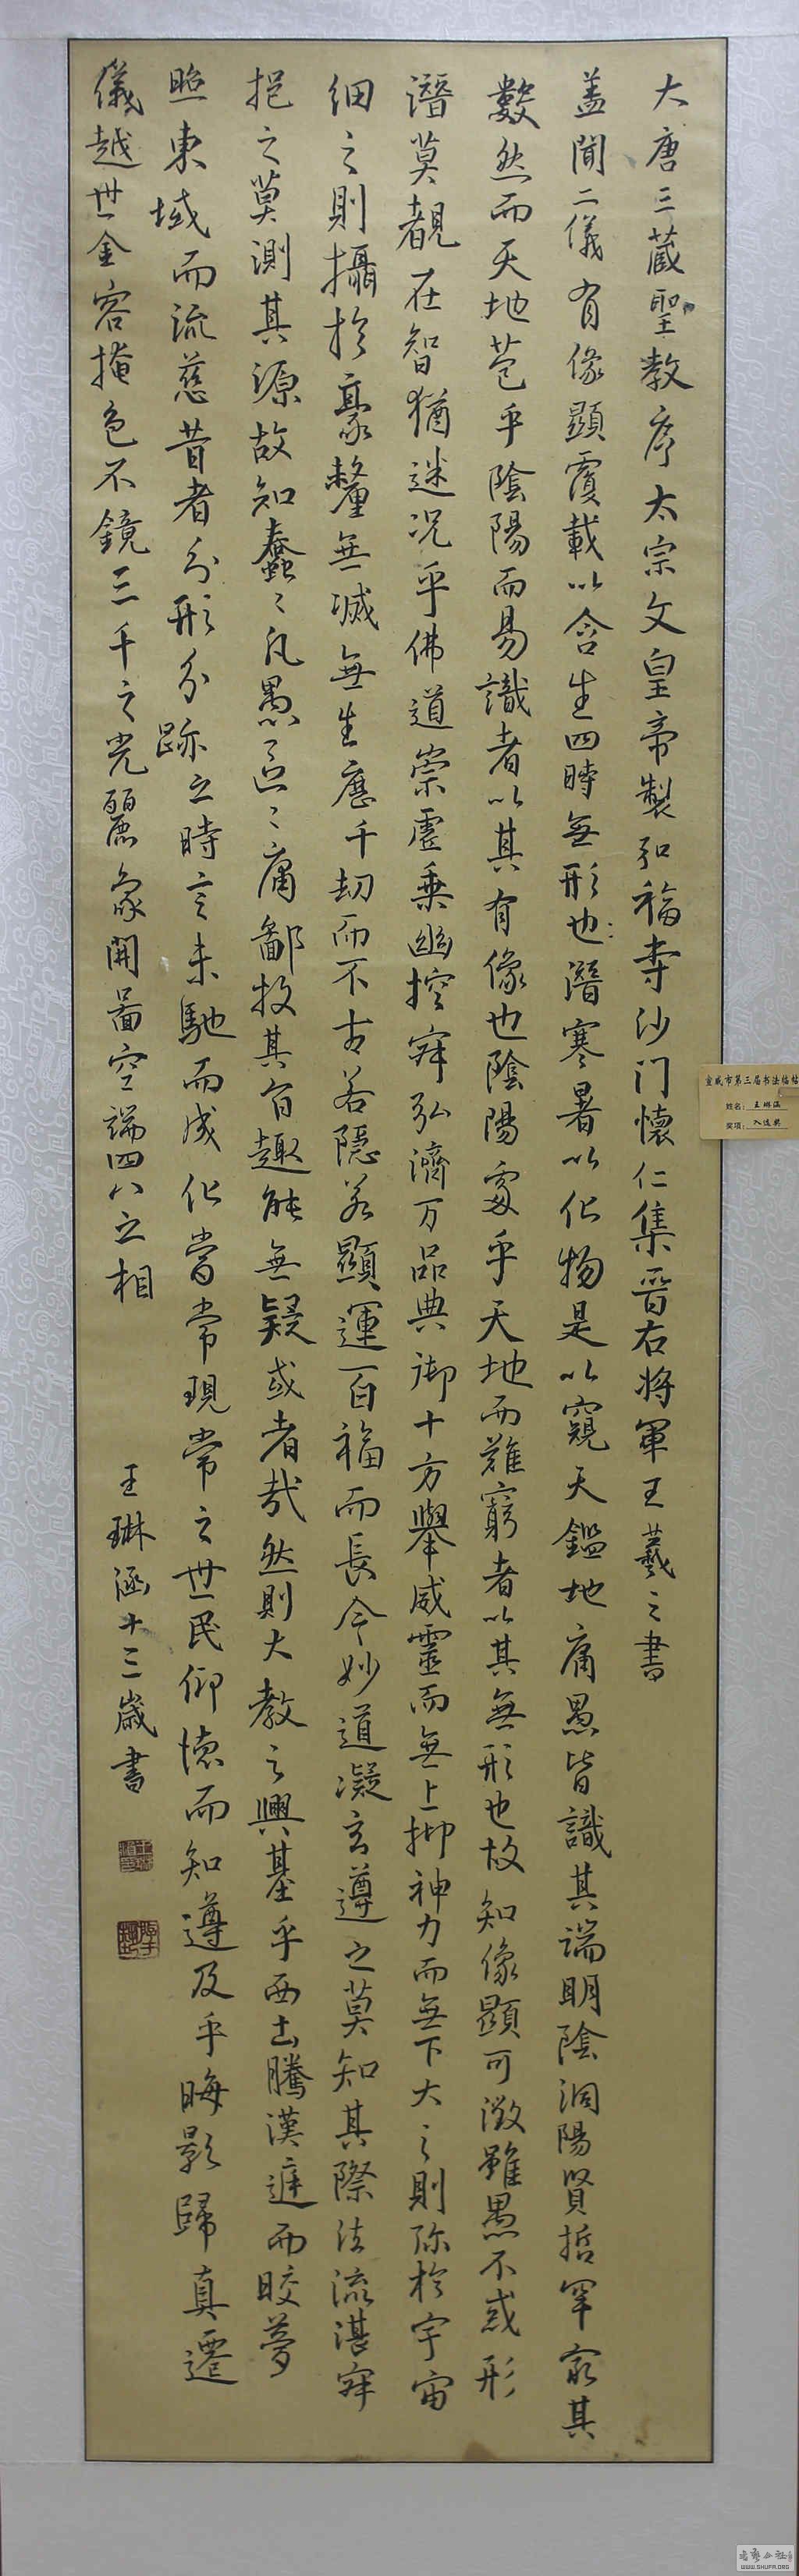 大唐三藏聖教序太宗文皇帝製弘福寺沙门懷仁集晉右将軍王羲之書
盖聞二儀有像顯覆載以含生四時無形也潛寒暑以化物是以窺天鑑地庸愚皆識其端明陰洞陽賢哲罕窮其
數然而天地苞乎陰陽而易識者以其有像也陰陽處乎天地而難窮者以其無形也故知像顯可徵雖愚不惑形
潛莫覩在智猶迷况乎佛道崇虛乗幽控寂弘濟万品典御十方舉威靈而無上抑神力而無下大之則弥於宇宙
細之則攝於豪釐無滅無生歷千劫而不古若隱若顯運百福而長今妙道凝玄遵之莫知其際法流湛寂
挹之莫測其源故知蠢〻凡愚區〻庸鄙投其旨趣能無疑或者哉然則大教之興基乎西土騰漢庭而皎夢
照東域而流慈昔者分形分跡之時言未馳而成化當常現常之世民仰德而知遵及乎晦影歸真遷
儀越世金容掩色不鏡三千之光麗象開圖空端四八之相
王琳涵十三歲書
宣威市第三届书法临帖
姓名：王琳涵
奖项：入选奖
书艺公社
WWW.SHUFA.ORG